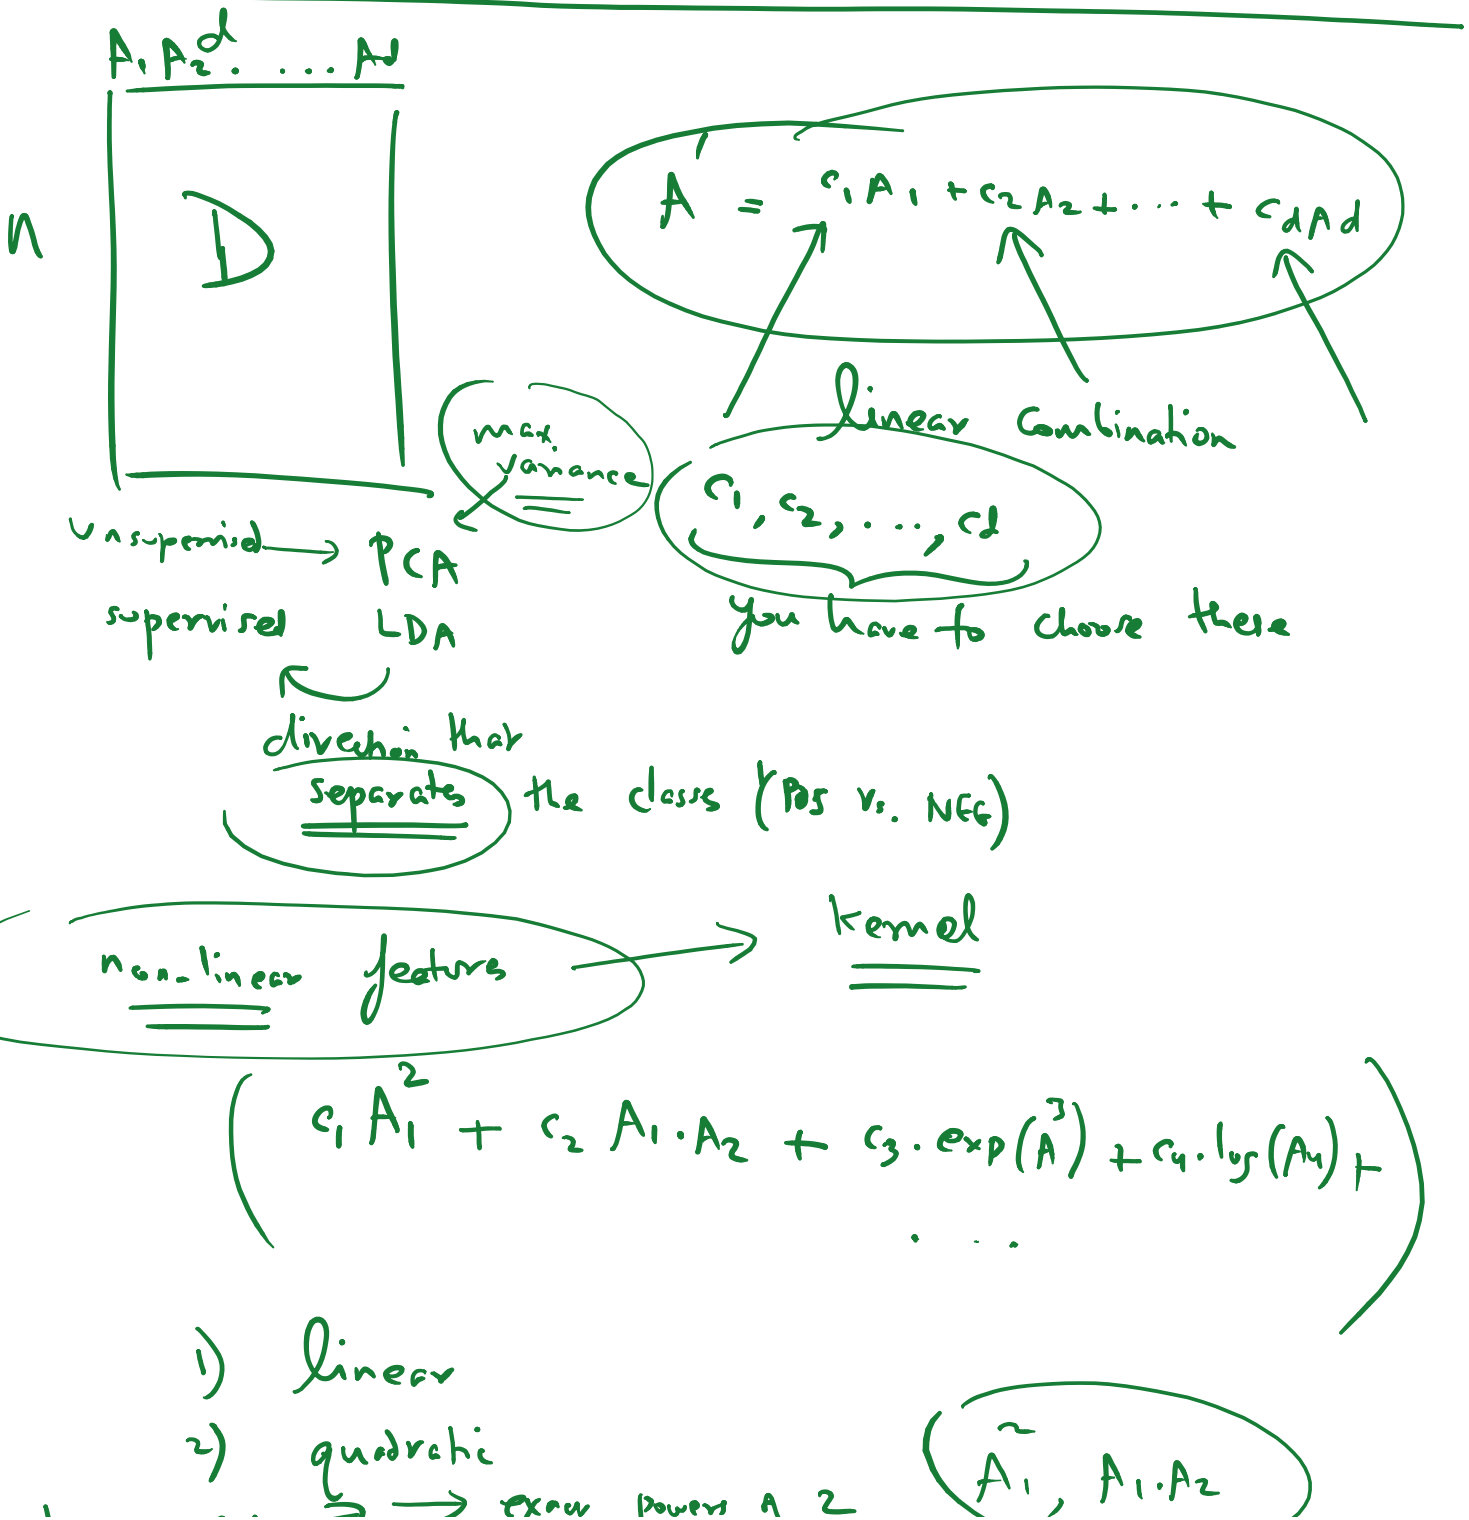 d
A₁ A₂ . . . . Ad
n
D
A' = c₁A₁ + c₂A₂ + ... + cdAd
linear combination
max. variance
c₁, c₂, ..., cd
you have to choose these
unsupervised → PCA
supervised LDA
direction that
separates the classes (POS vs. NEG)
non-linear features → Kernel
( c₁ A₁² + c₂ A₁·A₂ + c₃·exp(A³) + c₄·log(A₄) +
. . . )
1) linear
2) quadratic
A₁², A₁·A₂
→ exact powers 2